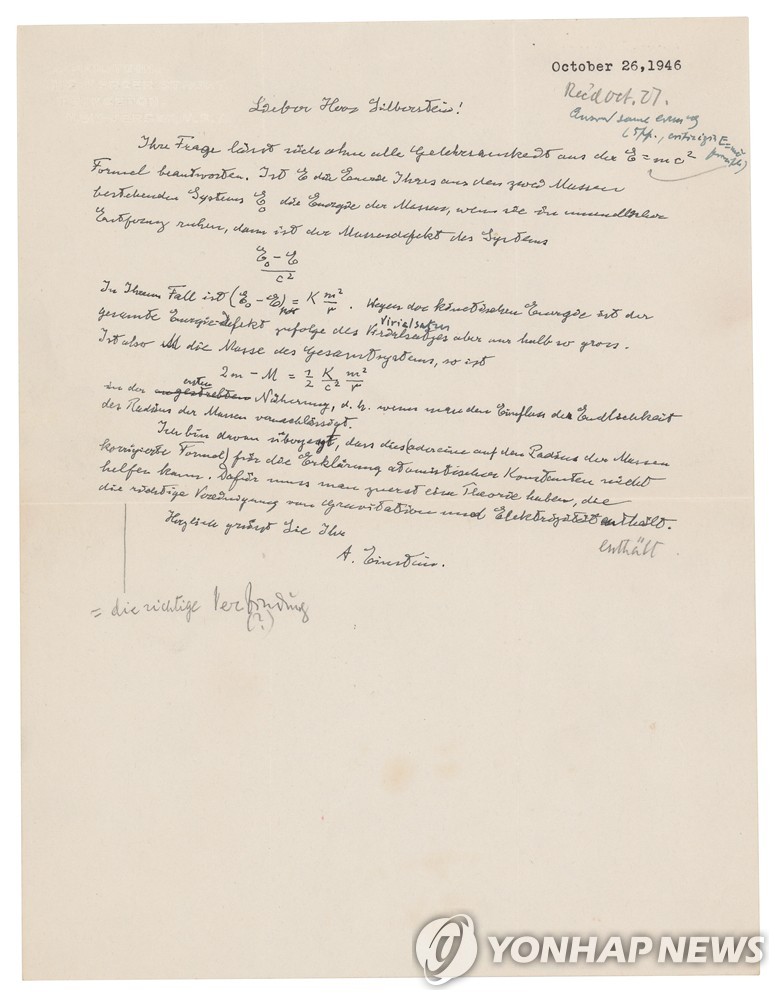 October 26,1946
Rec'd Oct. 27.
Answ'd same evening
(5 pp., criticizing E=mc²
Lieber Herr Silberstein!
Ihre Frage lässt sich ohne alle Gelehrsamkeit aus der E = mc²
Formel beantworten. Ist E die Energie Ihres aus den zwei Massen
bestehenden Systems E₀ die Energie der Massen, wenn sie in unendlicher
Entfernung ruhen, dann ist der Massendefekt des Systems
E₀ - E
c²
In Ihrem Fall ist (E₀ - E) = K m²/r . Wegen der kinetischen Energie ist der
Virialsatzes
gesamte Energie-Defekt zufolge des Virialsatzes aber nur halb so gross.
Ist also M die Masse des Gesamtsystems, so ist
2m - M = 1/2 K/c² m²/r
ersten
in der Näherung, d. h. wenn man den Einfluss der Endlichkeit
des Radius der Massen vernachlässigt.
Ich bin davon überzeugt, dass dies (oder eine auf den Radius der Massen
korrigierte Formel) für die Erklärung atomistischer Konstanten nicht
helfen kann. Dafür muss man zuerst eine Theorie haben, die
die richtige Vereinigung von Gravitation und Elektrizität enthält.
enthält
Herzlich grüsst Sie Ihr
A. Einstein.
= die richtige Verbindung
(?)
YONHAP NEWS